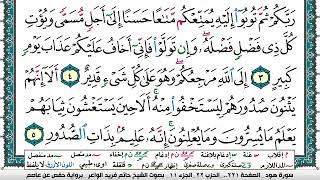 رَبَّكُمْ ثُمَّ تُوبُوٓا۟ إِلَيْهِ يُمَتِّعْكُم مَّتَٰعًا حَسَنًا إِلَىٰٓ أَجَلٍ مُّسَمًّى وَيُؤْتِ
كُلَّ ذِى فَضْلٍ فَضْلَهُۥ ۖ وَإِن تَوَلَّوْا۟ فَإِنِّىٓ أَخَافُ عَلَيْكُمْ عَذَابَ يَوْمٍ
كَبِيرٍ ٣ إِلَى ٱللَّهِ مَرْجِعُكُمْ ۖ وَهُوَ عَلَىٰ كُلِّ شَىْءٍ قَدِيرٌ ٤ أَلَآ إِنَّهُمْ
يَثْنُونَ صُدُورَهُمْ لِيَسْتَخْفُوا۟ مِنْهُ ۚ أَلَا حِينَ يَسْتَغْشُونَ ثِيَابَهُمْ
يَعْلَمُ مَا يُسِرُّونَ وَمَا يُعْلِنُونَ ۚ إِنَّهُۥ عَلِيمٌۢ بِذَاتِ ٱلصُّدُورِ ٥
سورة هود الصفحة ٢٢١ الجزء ١١ بصوت الشيخ حاتم فريد الواعر برواية حفص عن عاصم